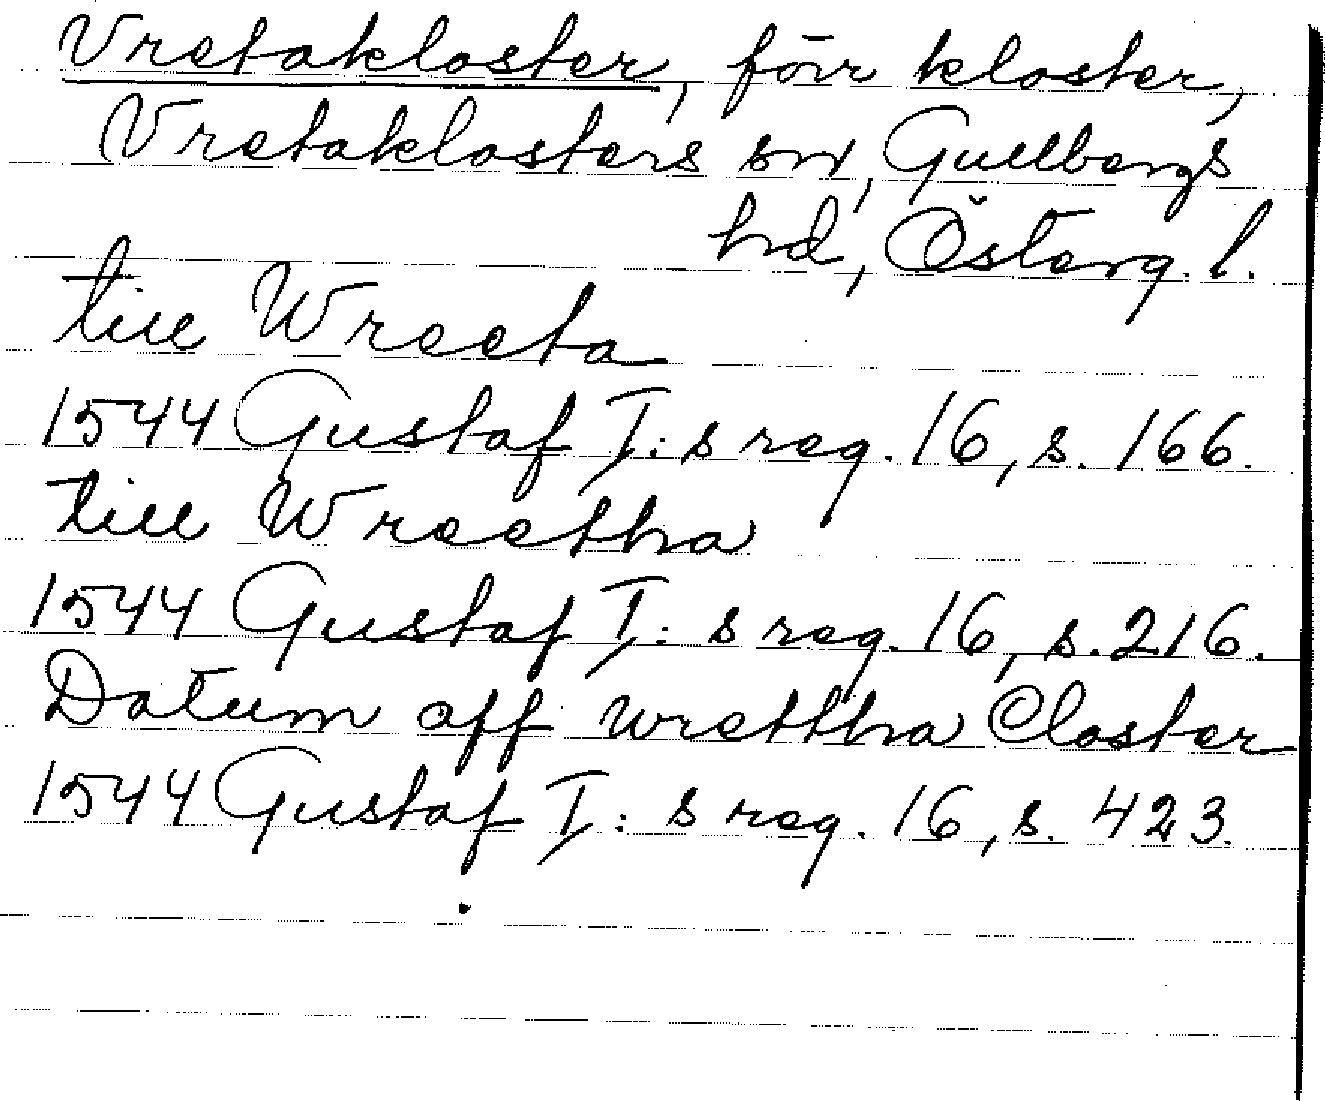 Vretakloster, förr kloster,
Vretaklosters sn, Gullbergs
hd, Österg. l.
till Wreeta
1544 Gustaf I:s reg. 16, s. 166.
till Wreetha
1544 Gustaf I:s reg. 16, s. 216.
Datum aff wrettha Closter
1544 Gustaf I:s reg. 16, s. 423.